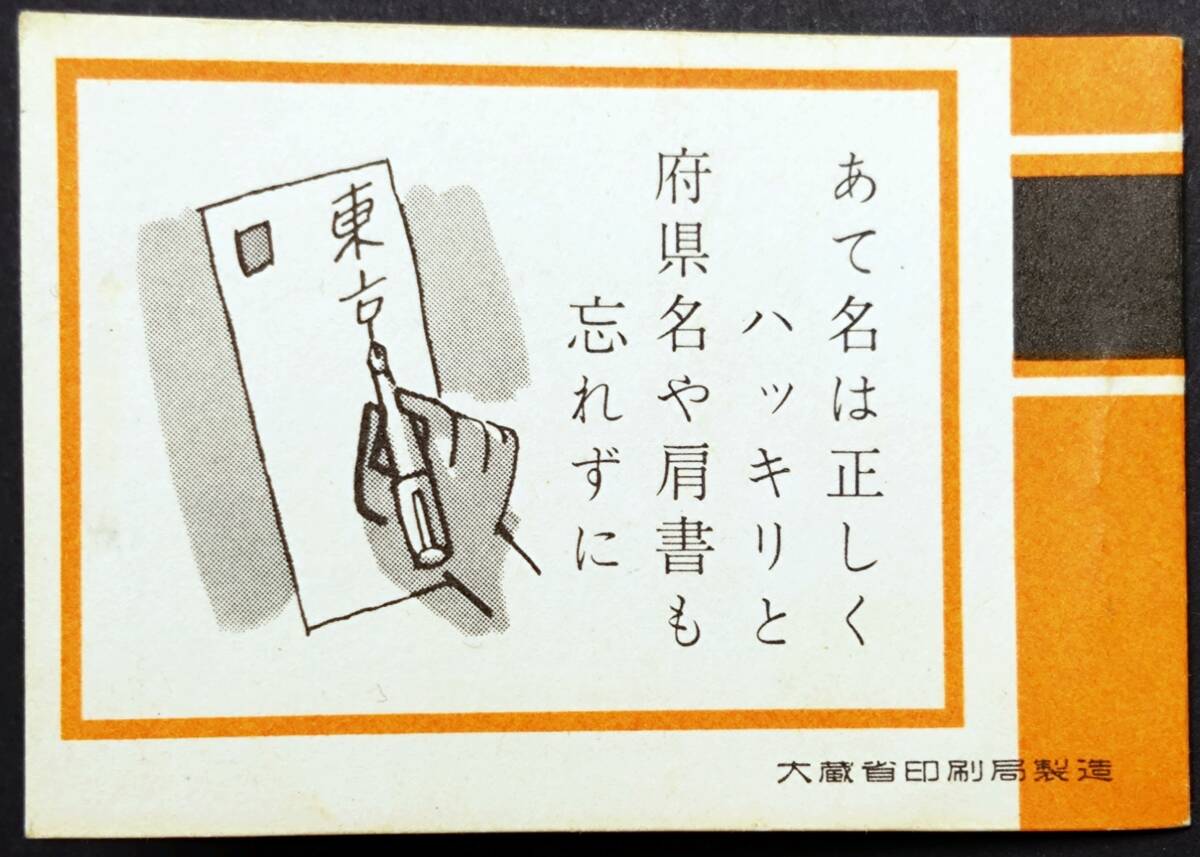 あて名は正しく
ハッキリと
府県名や肩書も
忘れずに
東京
大蔵省印刷局製造